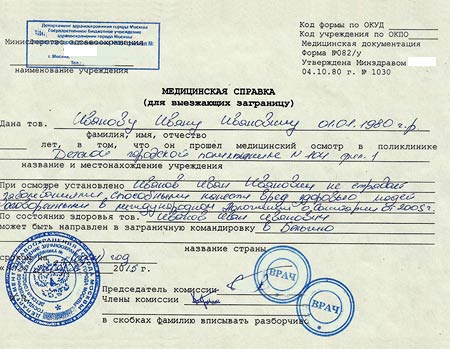 Департамент здравоохранения города Москвы
Государственное бюджетное учреждение
здравоохранения города Москвы
Министерство здравоохранения
г. Москва,
Тел.:
наименование учреждения
Код формы по ОКУД
Код учреждения по ОКПО
Медицинская документация
Форма №082/у
Утверждена Минздравом
04.10.80 г. № 1030
МЕДИЦИНСКАЯ СПРАВКА
(для выезжающих заграницу)
Дана тов. Иванову Ивану Ивановичу 01.01.1980 г.р.
фамилия, имя, отчество
лет, в том, что он прошел медицинский осмотр в поликлинике
Детской городской поликлинике № 104
название и местонахождение учреждения
При осмотре установлено Иванов Иван Иванович не страдает
заболеваниями, способными нанести вред здоровью людей
в международной о санитарии от 2005 г.
По состоянию здоровья тов. Иванов Иван Иванович
может быть направлен в заграничную командировку в
название страны
сроком на год
2015 г.
Председатель комиссии
Члены комиссии
в скобках фамилию вписывать разборчиво
ВРАЧ
ВРАЧ